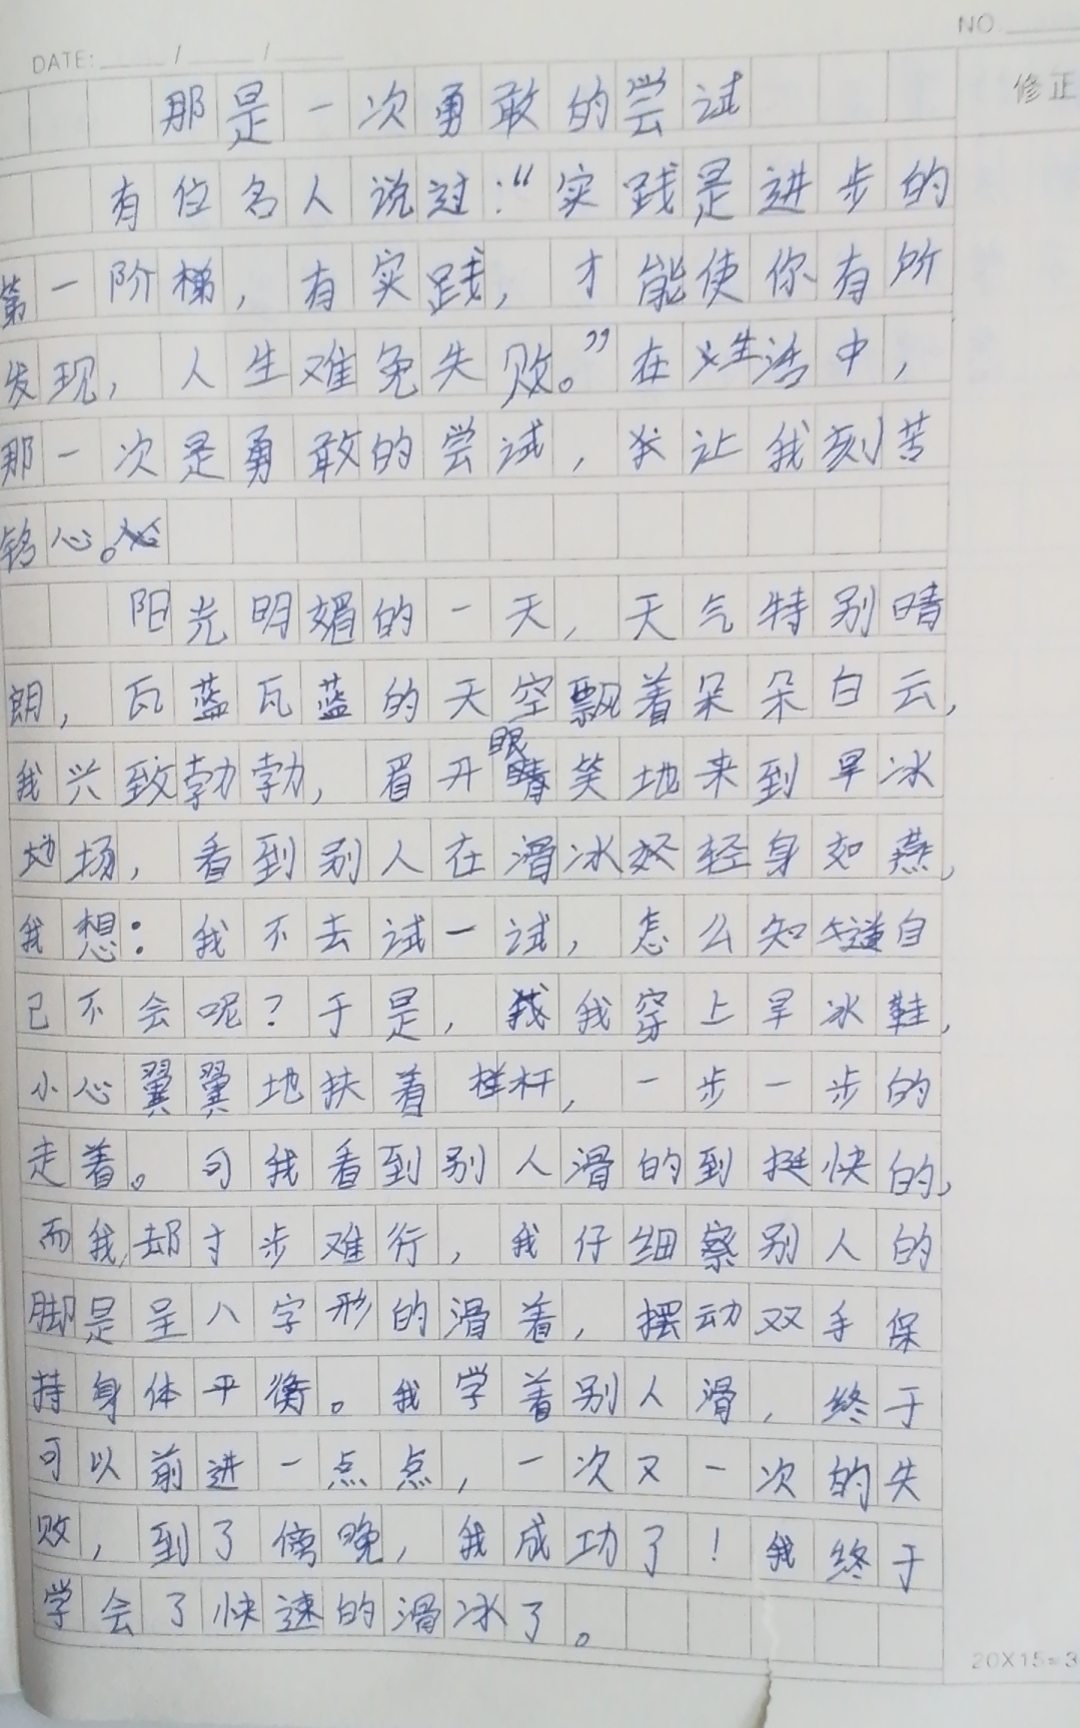 NO.
DATE: / /
修正
那是一次勇敢的尝试
有位名人说过:“实践是进步的
第一阶梯,有实践,才能使你有所
发现,人生难免失败。”在生活中,
那一次是勇敢的尝试,让我刻苦
铭心。
阳光明媚的一天,天气特别晴
朗,瓦蓝瓦蓝的天空飘着朵朵白云,
我兴致勃勃,眉开眼笑地来到旱冰
地场,看到别人在滑冰轻身如燕,
我想:我不去试一试,怎么知道自
己不会呢?于是,我穿上旱冰鞋,
小心翼翼地扶着栏杆,一步一步的
走着。可我看到别人滑的到挺快的,
而我却寸步难行,我仔细察别人的
脚是呈八字形的滑着,摆动双手保
持身体平衡。我学着别人滑,终于
可以前进一点点,一次又一次的失
败,到了傍晚,我成功了!我终于
学会了快速的滑冰了。
20X15=3